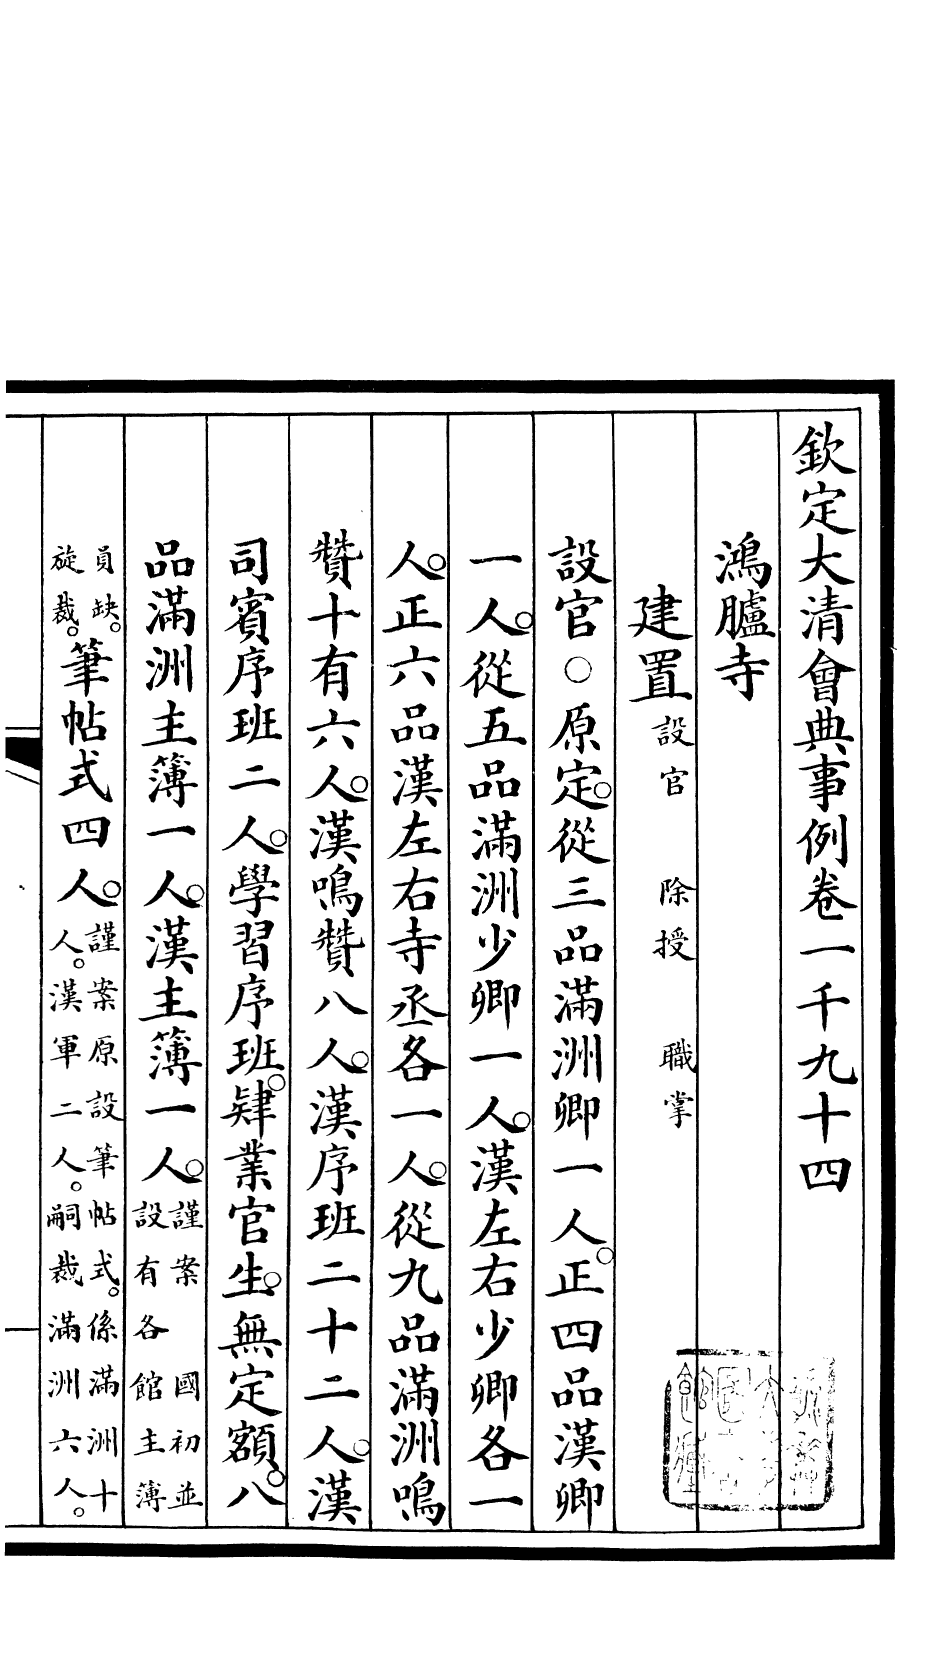 欽定大清會典事例卷一千九十四
鴻臚寺
建置設官　除授　職掌
設官○原定。從三品滿洲卿一人。正四品漢卿
一人。從五品滿洲少卿一人。漢左右少卿各一
人。正六品漢左右寺丞各一人。從九品滿洲鳴
贊十有六人。漢鳴贊八人。漢序班二十二人。漢
司賓序班二人。學習序班。肄業官生。無定額。八
品滿洲主簿一人。漢主簿一人。謹案　國初並設有各館主簿
員缺。旋裁。筆帖式四人。謹案原設筆帖式。係滿洲十人。漢軍二人。嗣裁滿洲六人。